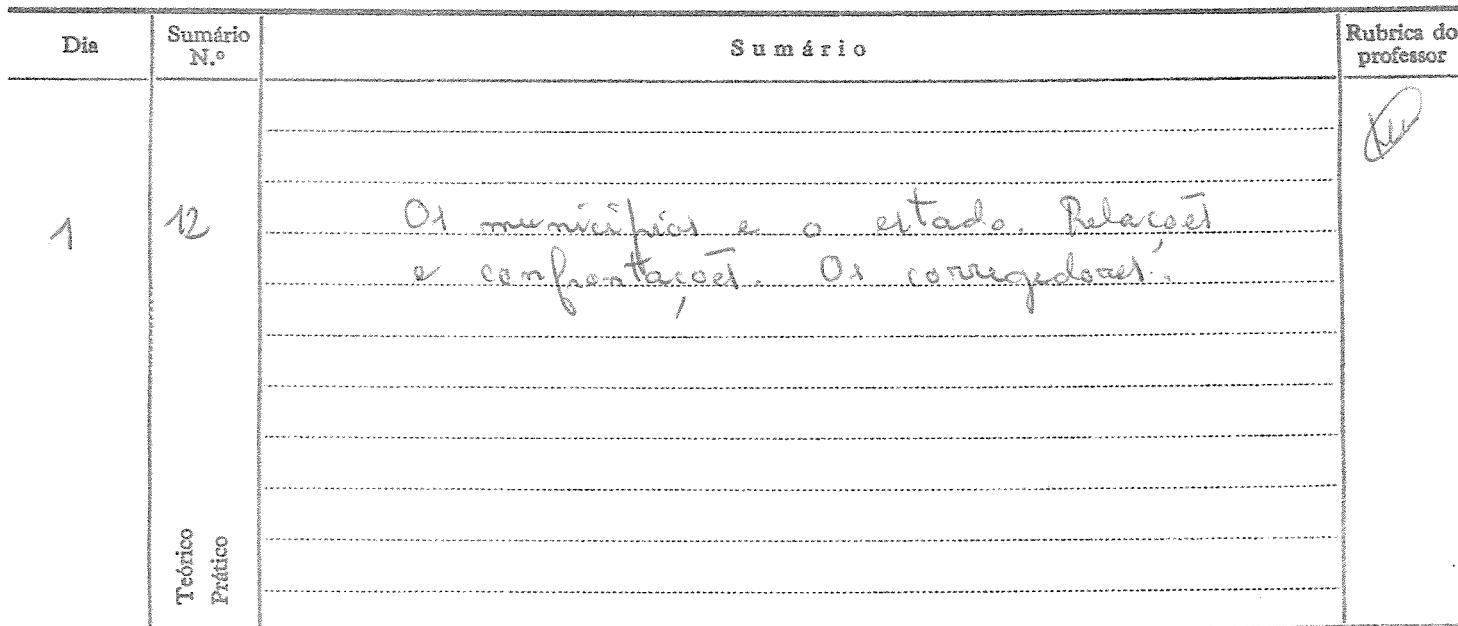 Dia
Sumário N.º
Sumário
Rubrica do professor
1
12
Os municípios e o estado. Relações
e confrontações. Os corregedores.
Teórico
Prático